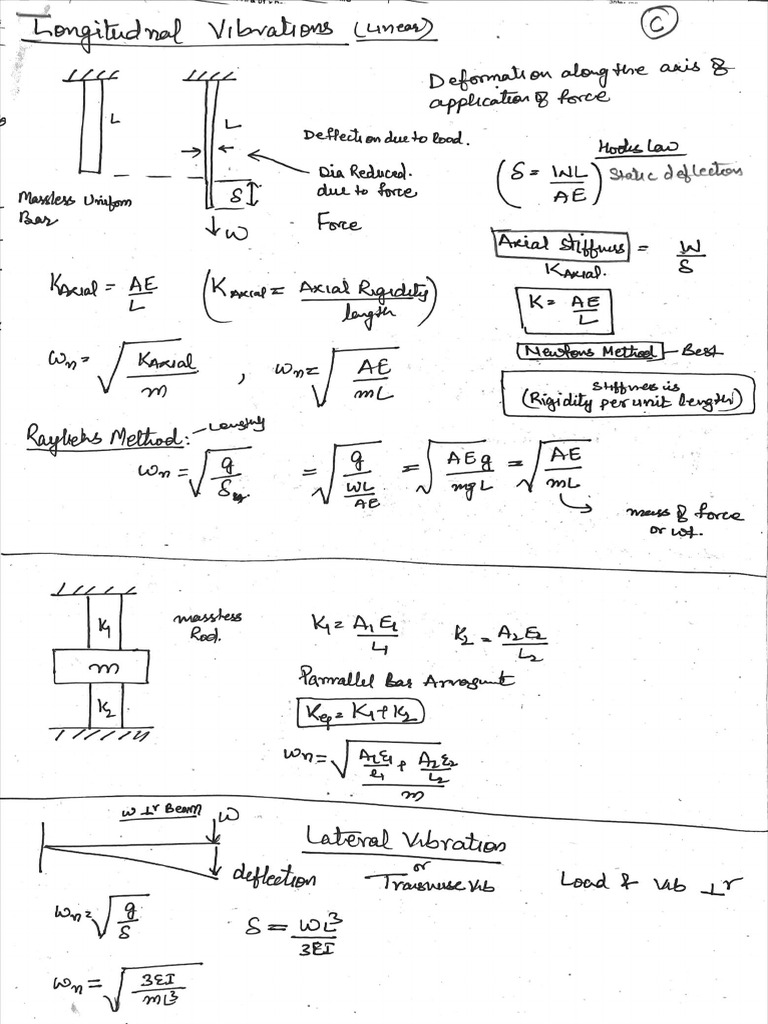 Longitudnal Vibrations (Linear)
C
Deformation along the axis of
application of force
L
L
Deflection due to load.
Dia Reduced.
due to force
Force
δ
W
Massless Uniform
Bar
Hooks Law
(δ = WL/AE) Static deflection
Axial Stiffness = W/δ
K Axial.
K = AE/L
K Axial = AE/L (K Axial = Axial Rigidity/length)
Newtons Method - Best
ωn = √(K Axial/m) , ωn = √(AE/mL)
Stiffness is
(Rigidity per unit length)
Rayliehs Method: - Lengthy
ωn = √(g/δ) = √(g/(WL/AE)) = √(AEg/mgL) = √(AE/mL)
mass of force
or wt.
K1
m
K2
massless
Rod.
K1 = A1E1/L1 K2 = A2E2/L2
Parrallel Bar Arrangment
Keq = K1 + K2
ωn = √((A1E1/L1 + A2E2/L2)/m)
W ⊥r Beam
W
deflection
Lateral Vibration
or
Transverse Vib
Load & Vib ⊥r
ωn = √(g/δ)
δ = WL³/3EI
ωn = √(3EI/mL³)